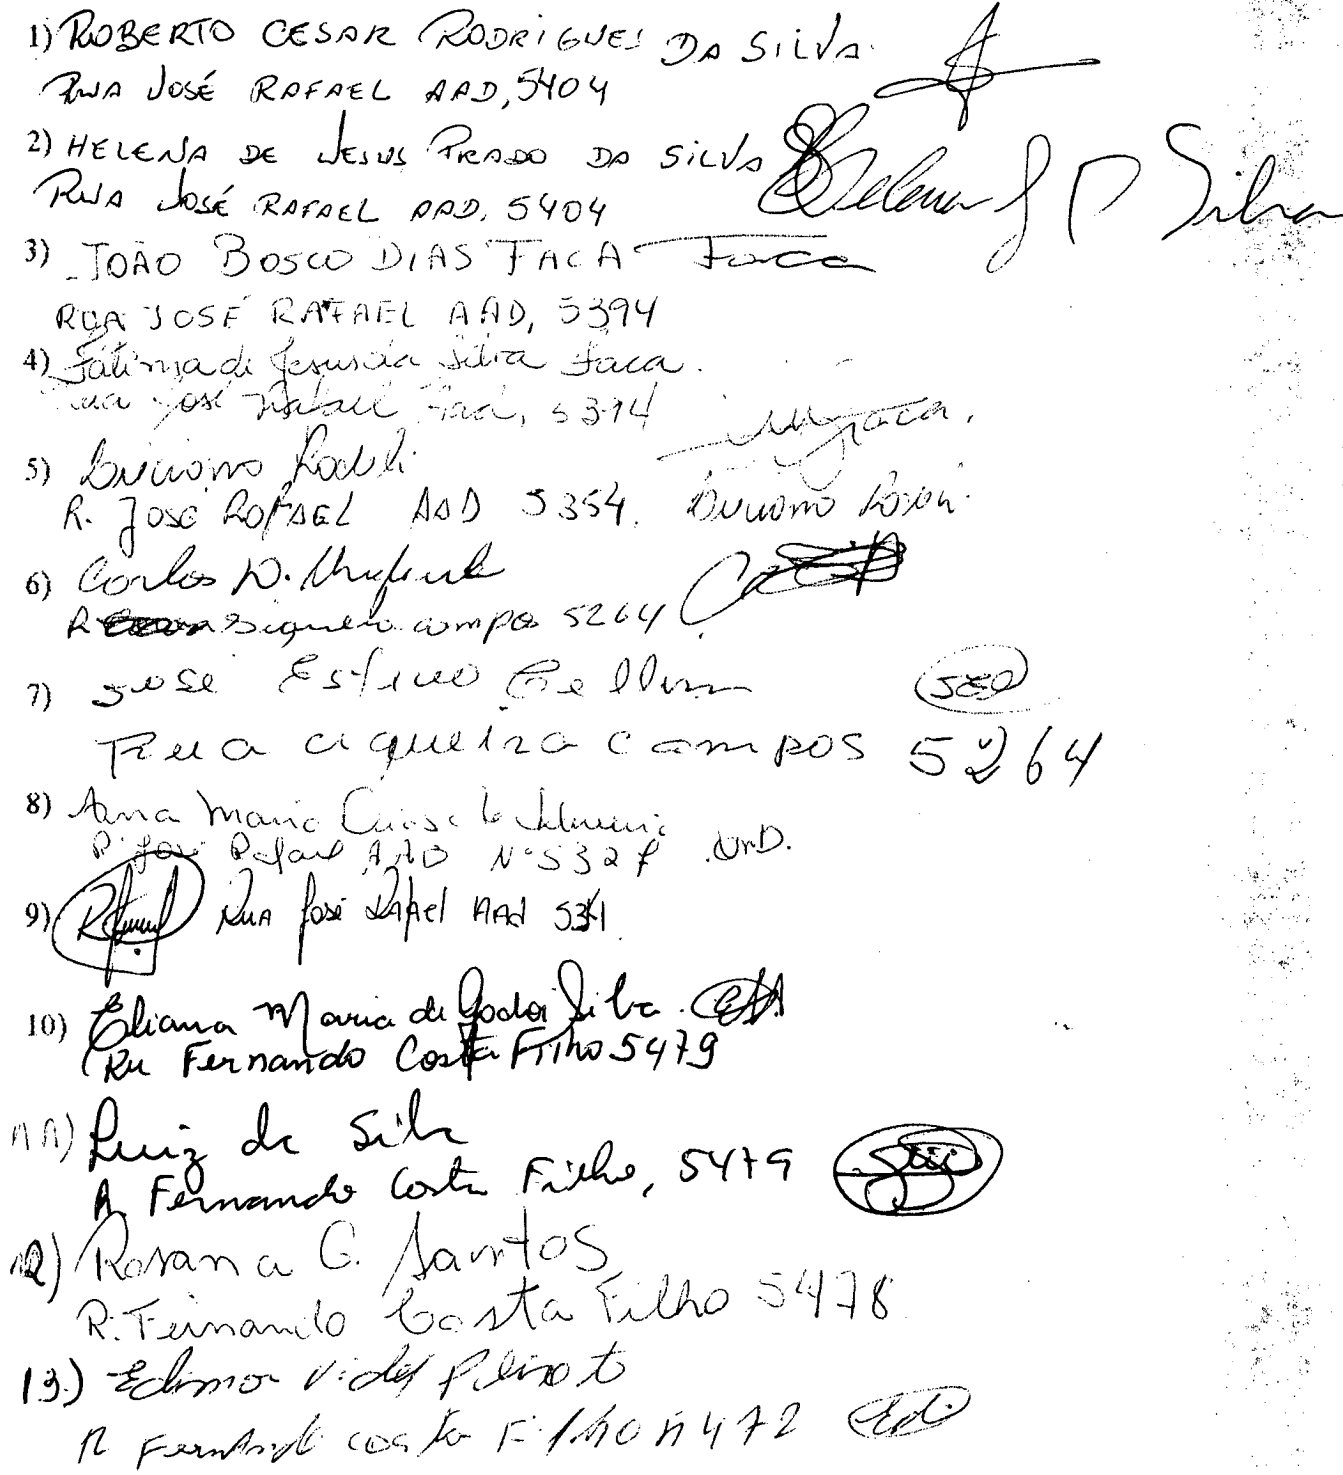 1) ROBERTO CESAR RODRIGUES DA SILVA
RUA JOSÉ RAFAEL AAD, 5404
2) HELENA DE JESUS PRADO DA SILVA Helena J P Silva
RUA JOSÉ RAFAEL AAD, 5404
3) JOÃO BOSCO DIAS FACA Faca
RUA JOSÉ RAFAEL AAD, 5394
4) Fátima de Jesus da Silva Faca.
Rua José Rafael Aad, 5394
5) Luciano
R. José RAFAEL AAD 5354. Luciano
6) Carlos D.
R Siqueira campos 5264
7) José
Rua ciqueira campos 5264
8) Anna Maria
R. José Rafael AAD Nº 5327
9) Rua José Rafael AAd
10) Eliana Maria de Godoi Silva.
Ru Fernando Costa Filho 5479
11) Luiz da Silva
R Fernando Costa Filho, 5479
12) Rosana G. Santos
R. Fernando Costa Filho 5478
13) Edimar Vidal
R Fernando costa Filho